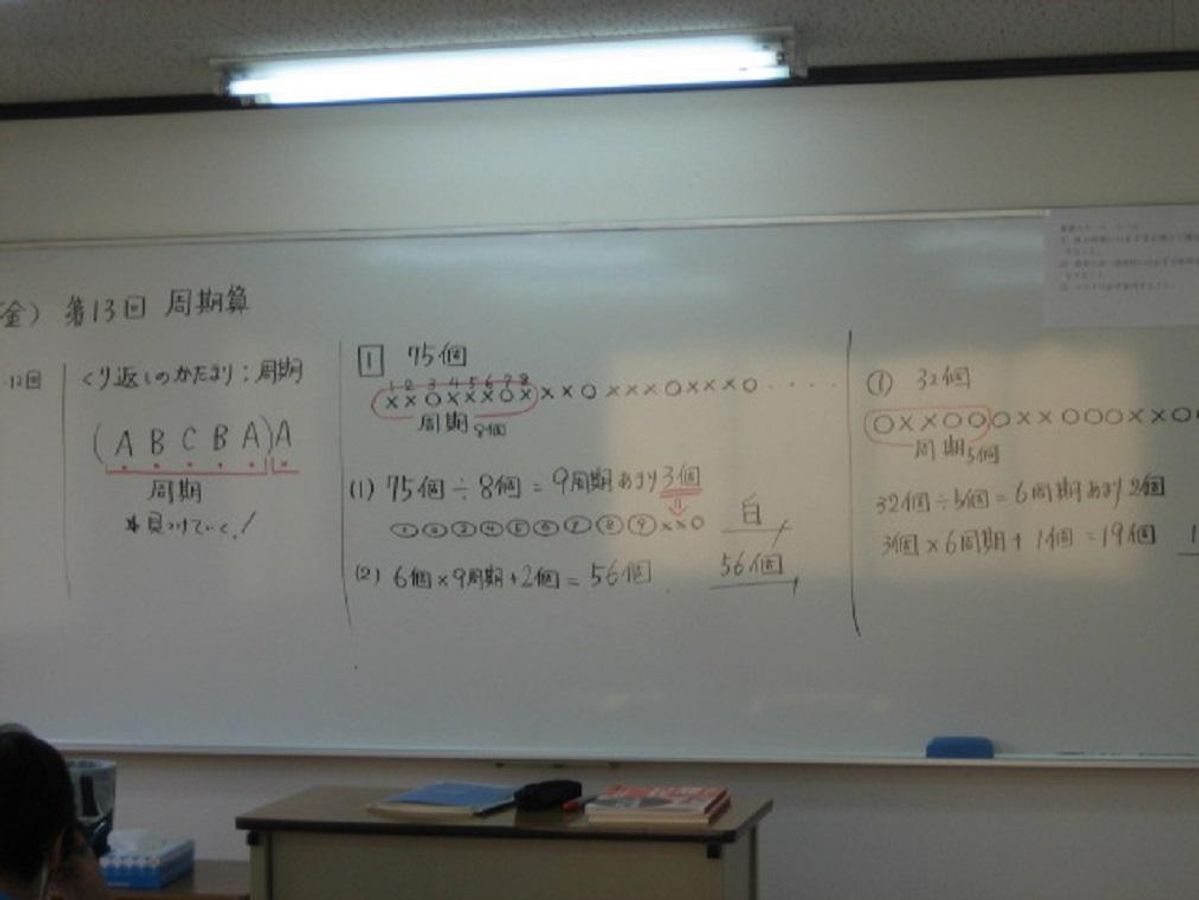 金) 第13回 周期算
12回
くり返しのかたまり:周期
(A B C B A)A
周期
見つけていく!
1 75個
1 2 3 4 5 6 7 8
××○×××○×××○×××○×××○・・・・
周期 8個
(1) 75個÷8個=9周期あまり3個
①②③④⑤⑥⑦⑧⑨××○ 白
(2) 6個×9周期+2個=56個 56個
① 32個
○××○○○××○○○××○
周期 5個
32個÷5個=6周期あまり2個
3個×6周期+1個=19個 1